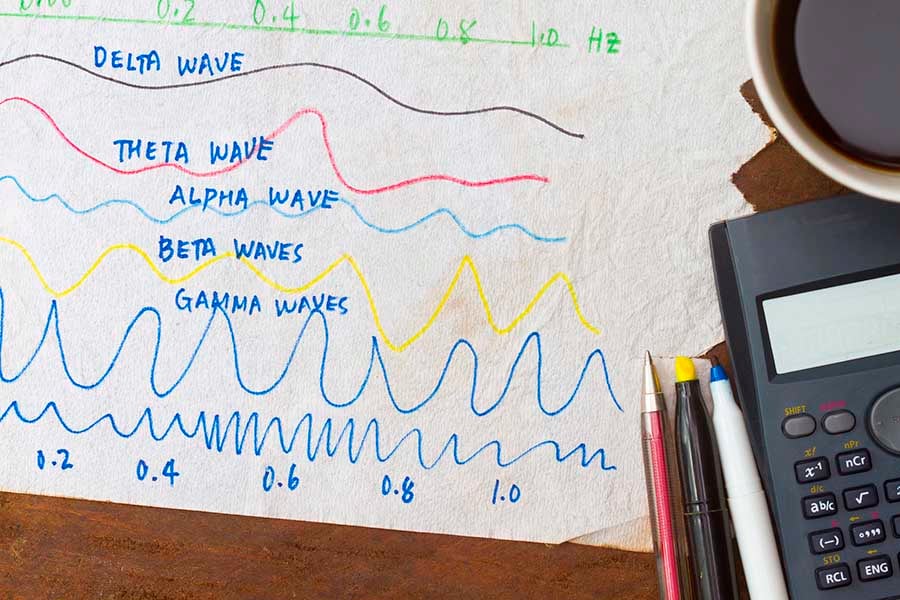 0.00 0.2 0.4 0.6 0.8 1.0 HZ
DELTA WAVE
THETA WAVE
ALPHA WAVE
BETA WAVES
GAMMA WAVES
0.2 0.4 0.6 0.8 1.0
SHIFT
x! nPr
x⁻¹ nCr
d/c
ab/c √
(−) °,,,
STO
RCL ENG